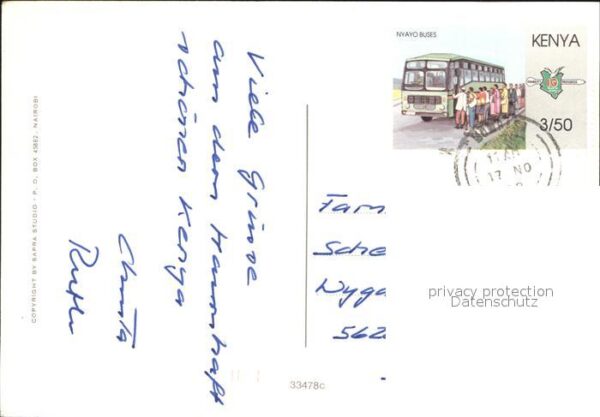 Viele Grüsse
aus dem traumhaft
schönen Kenya
Christa
Ruth
COPYRIGHT BY SAPRA STUDIO · P. O. BOX 45882 · NAIROBI
NYAYO BUSES
KENYA
3/50
17 NO
Fam
Sche
Wyga
562
privacy protection
Datenschutz
33478c